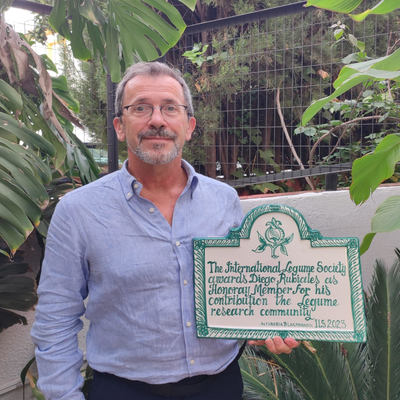 The International Legume Society
awards Diego Rubiales as
Honoray Member for his
contribution the Legume
research community
ILS 2023